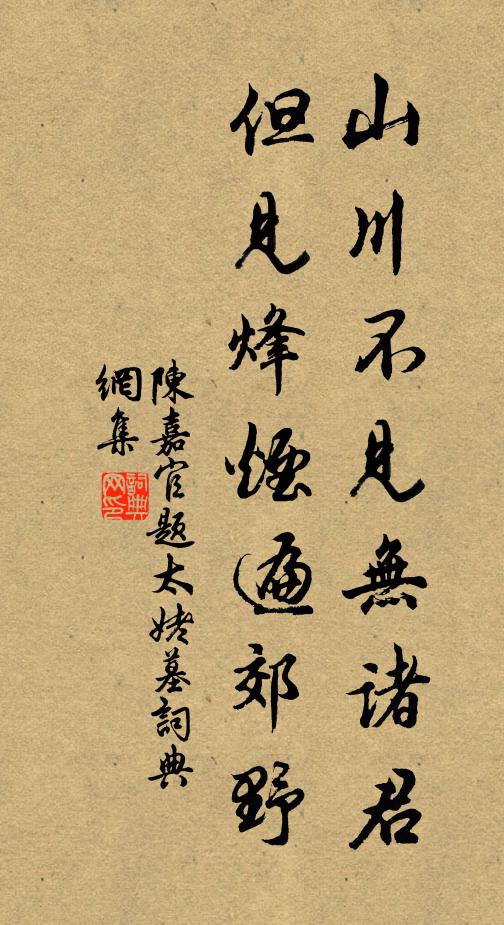 山川不見無諸君
但見烽煙遍郊野
陳嘉官題太姥墓詞典
網集
詞典
网印